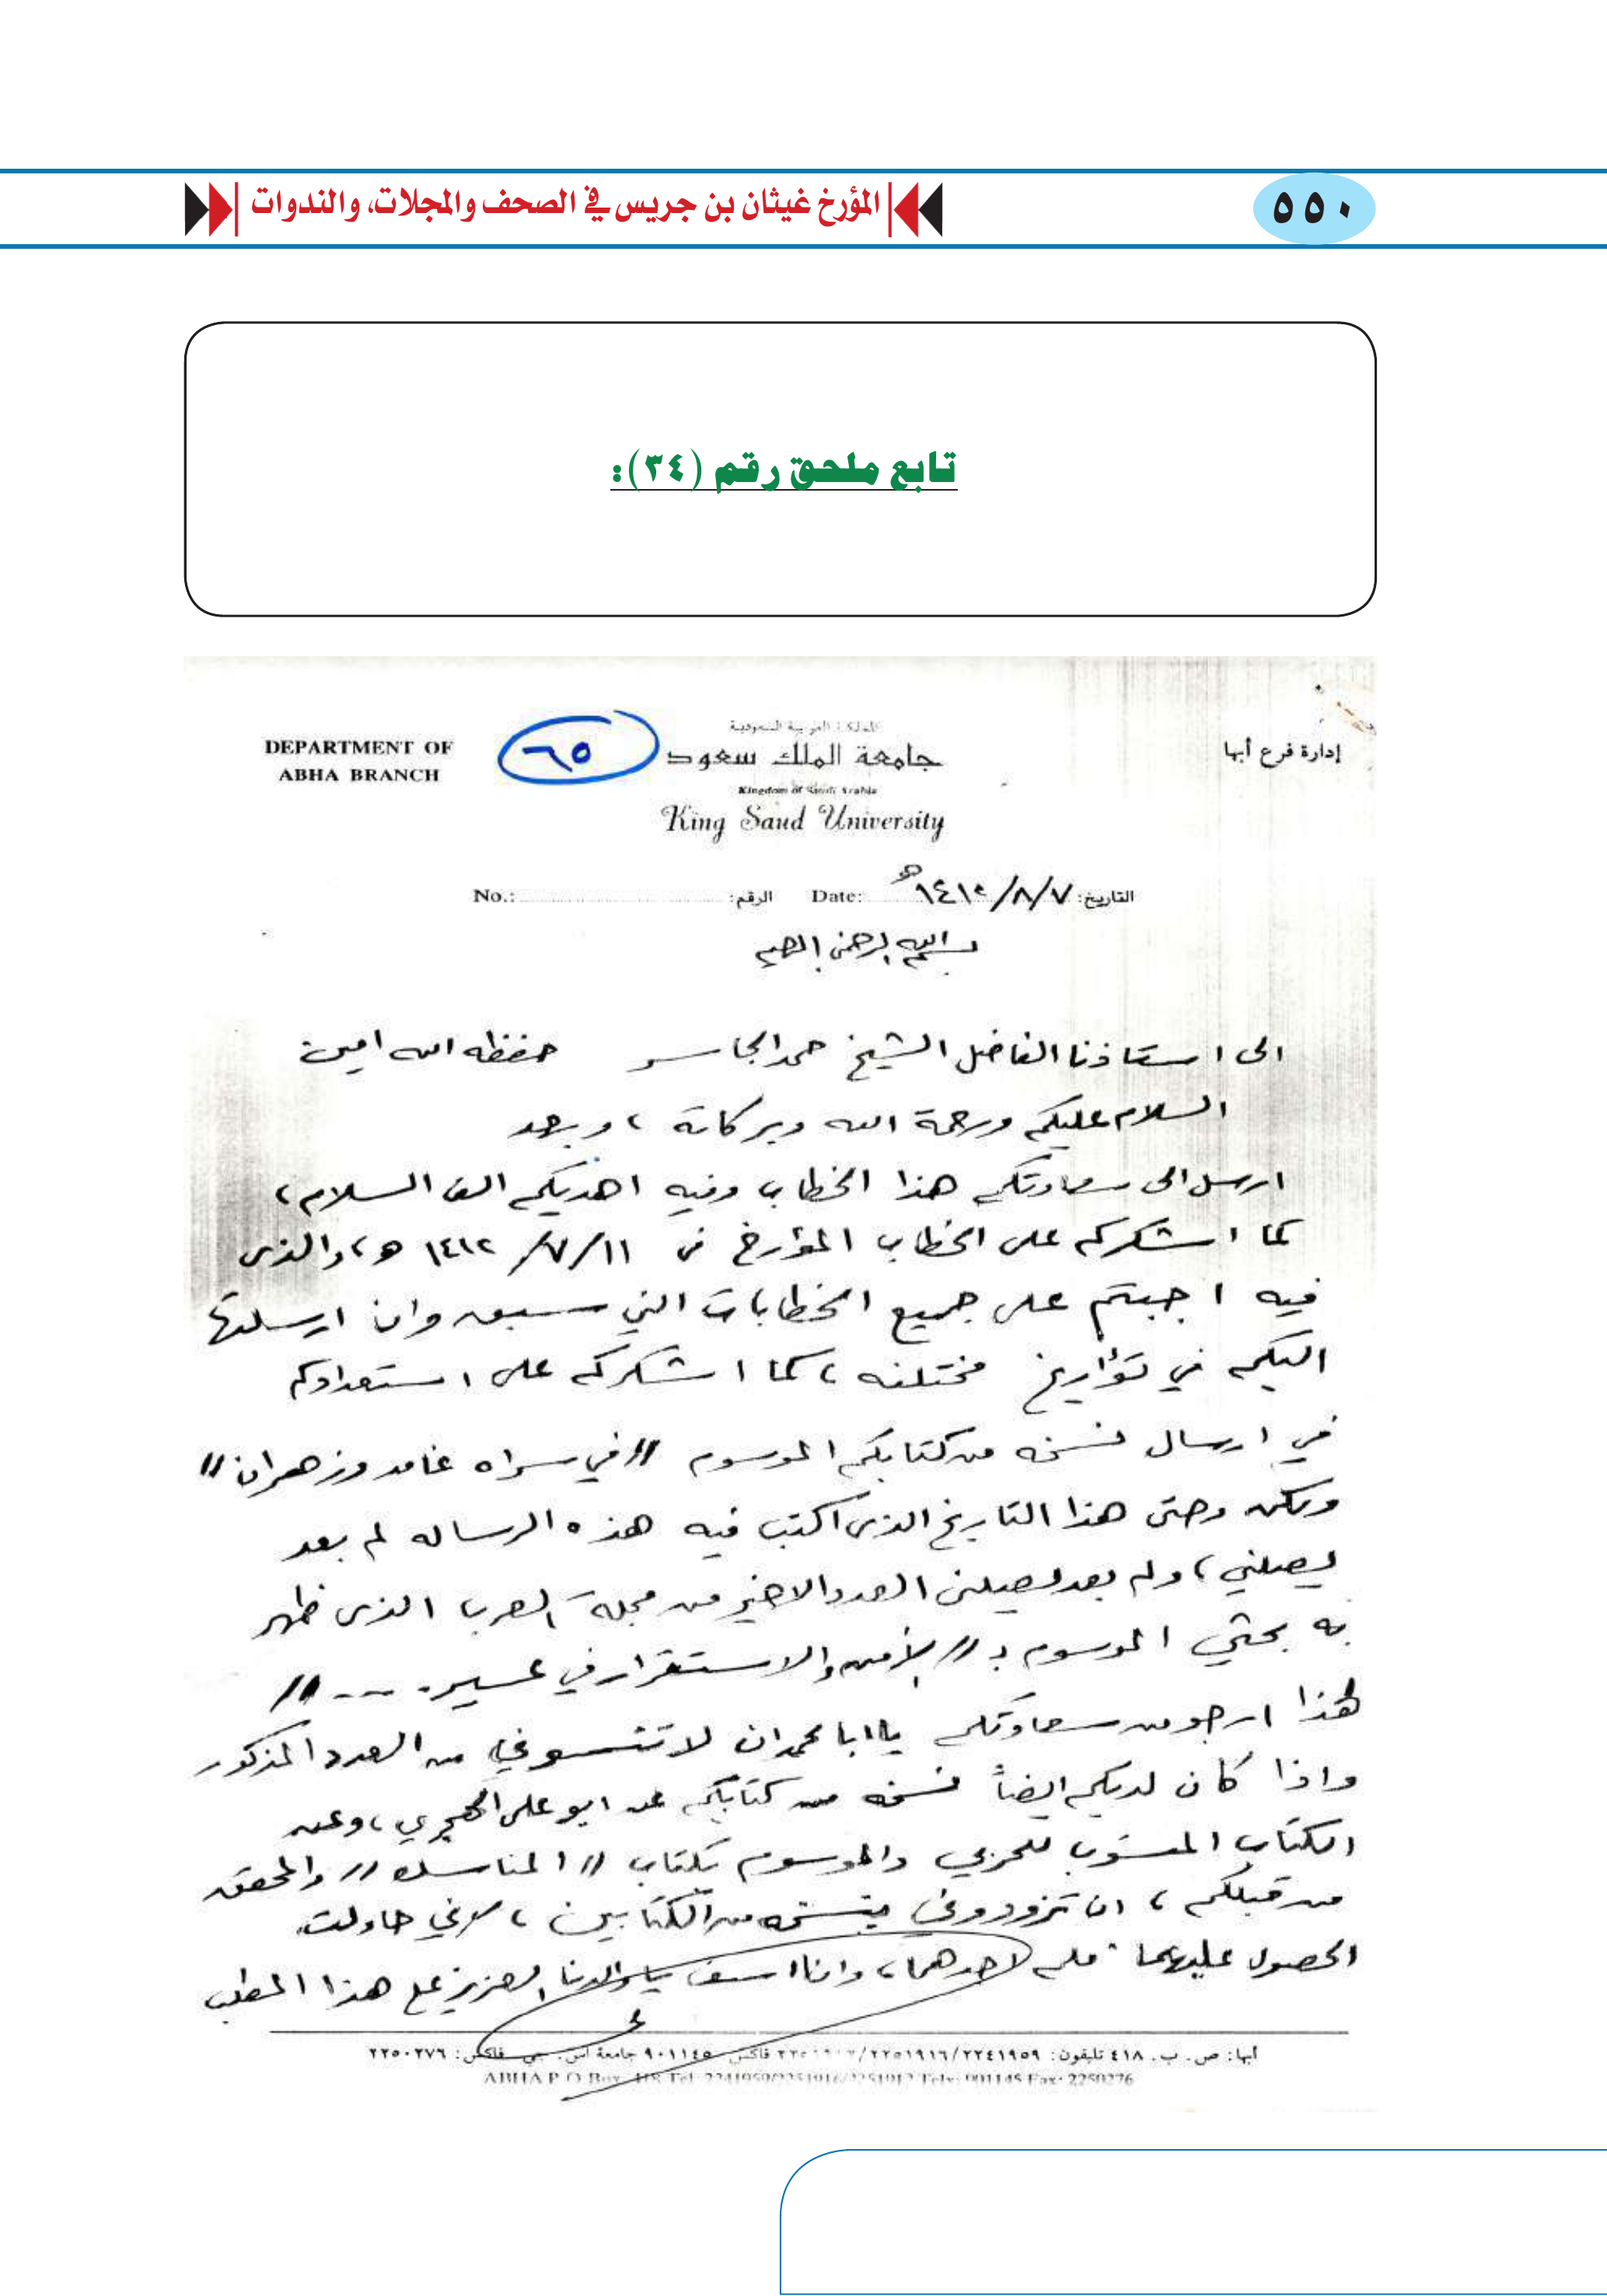 ٥٥٠
المؤرخ غيثان بن جريس في الصحف والمجلات، والندوات
تابع ملحق رقم (٣٤):
المملكة العربية السعودية
إدارة فرع أبها
جامعة الملك سعود
٦٥
DEPARTMENT OF
ABHA BRANCH
Kingdom of Saudi Arabia
King Saud University
التاريخ: ٧/٨/١٤١٢هـ Date: الرقم: No.:
بسم الله الرحمن الرحيم
الى استاذنا الفاضل الشيخ حمد الجاسر حفظه الله امين
السلام عليكم ورحمة الله وبركاته ، وبعد
ارسل الى سعادتكم هذا الخطاب وفيه اهديكم الف السلام ،
كما اشكركم على الخطاب المؤرخ في ١١/٧/١٤١٢ هـ ، والذى
فيه اجبتم على جميع الخطابات التي سبق وان ارسلتها
اليكم في تؤاريخ مختلفه ، كما اشكركم على استعدادكم
في ارسال نسخه من كتابكم الموسوم // في سراه غامد وزهران //
ولكن وحتى هذا التاريخ الذى اكتب فيه هذه الرساله لم بعد
يصلني ، ولم بعد يصلنى العدد الاخير من مجلة العرب الذى ظهر
به بحثي الموسوم بـ // الأمن والاستقرار في عسير. --- //
لهذا ارجو من سعادتكم يا ابا محمد ان لا تنسوني من العدد المذكور
واذا كان لديكم ايضاً نسخه من كتابكم عن ابو على الهجري ، وعن
الكتاب المنسوب للحربي والموسوم بكتاب // المناسك // والمحقق
من قبلكم ، ان تزودوني بنسخه من الكتابين ، لانني حاولت
الحصول عليهما فلم اجدهما ، وانا اسف يا والدنا العزيز على هذا الطلب
أبها: ص. ب. ٤١٨ تليفون: ٢٢٤١٩٥٩/٢٢٥١٩١٦/٢٢٥١٩١٢ فاكس ٩٠١١٤٥ جامعة اس. جي. فاكس: ٢٢٥٠٢٧٦
ABHA P.O.Box. 418 Tel. 2241959/2251916/2251912 Telx: 901145 Fax: 2250276